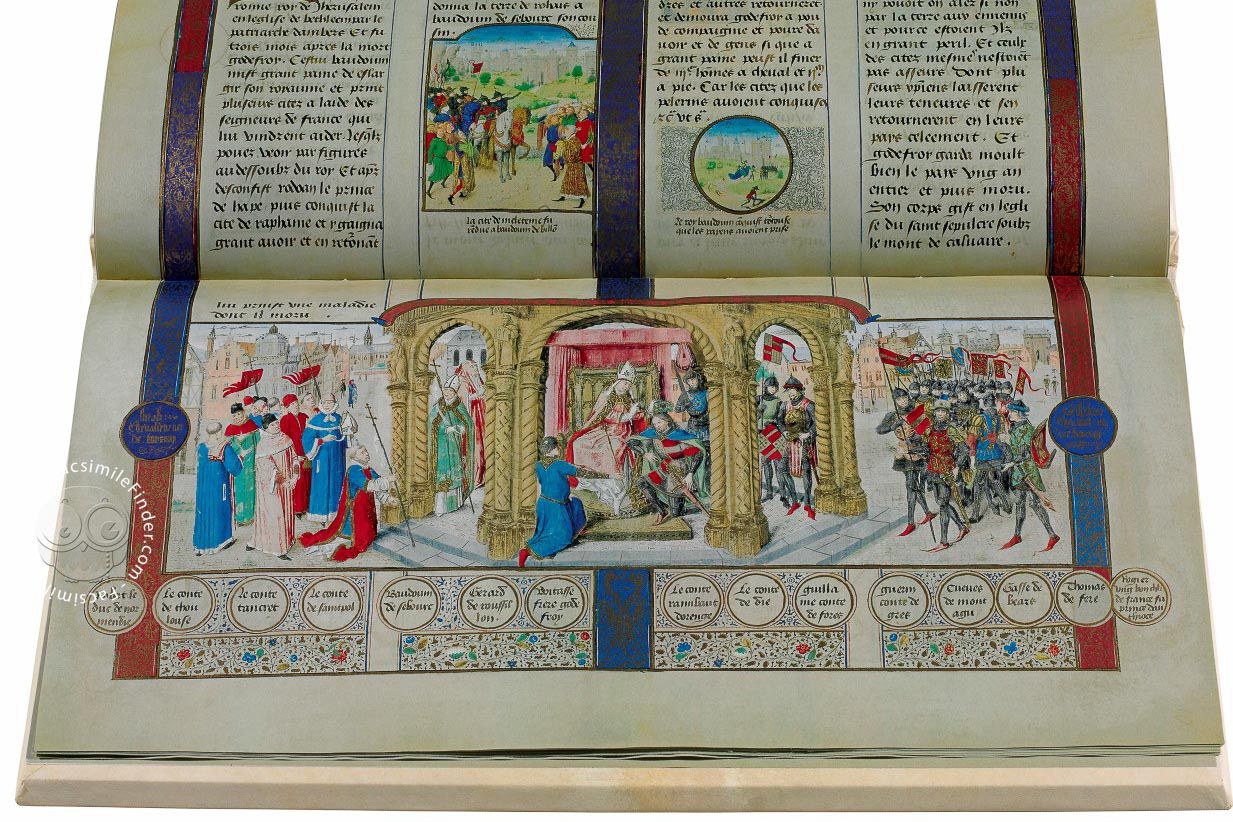 ronne roy de Jherusalem
en leglise de bethleem par le
patriarche dambert Et fu
trois mois apres la mort
godefroy. Cestui bauduin
mist grant paine de eslar
gir son royaume et print
pluseurs citez a laide des
seigneurs de france qui
lui vindrent aider
pouez veoir par figures
au dessoubz du roy Et apres
desconfist le prince
de puis conquist la
cite de raphaine et y gaigna
grant avoir et en retournant
donna la terre de rohais a
bauduin de sebourc son cou
sin.
la cite de meleteme fu
rendue a bauduin de
dres et autres retournerent
et demoura godefroy a pou
de compaignie et povre da
voir et de gens si que a
grant paine peust il finer
de hommes a cheval et
a pie. Car les citez que les
pelerins avoient conquises
le roy bauduin conquist
que les paiens avoient prise
ny pouoit on aler si non
par la terre aux ennemis
et pource estoient Ilz
en grant peril. Et ceulx
des citez mesme nestoient
pas asseurs dont plu
seurs xpiens laisserent
leurs teneures et sen
retournerent en leurs
pays celeement. Et
godefroy garda moult
bien le pays ung an
entier et puis moru.
Son corps gist en legli
se du saint sepulcre soubz
le mont de calvaire.
lui prinst une maladie
dont il moru.
duc de nor
mendie
Le conte
de thou
louse
le conte
tancret
Le conte
de sainpol
Bauduin
de sebourc
Gerard
de roussil
lon.
Witasse
frere gode
froy
Le conte
rambaut
dorenge
Le conte
de die
guilla
me conte
de fores
guerin
conte de
gres
Cuenes
de mont
agu
Gasse de
bears
Thomas
de fere
Rogier
ung bon chlr
de france fu
prince dan
thioce
FacsimileFinder.com